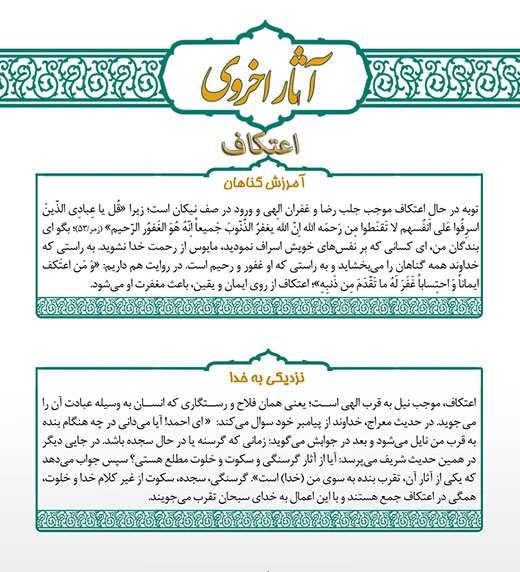 آثار اخروی
اعتکاف
آمرزش گناهان
توبه در حال اعتکاف موجب جلب رضا و غفران الهی و ورود در صف نیکان است؛ زیرا «قُل یا عِبادِی الذّینَ
اسرفُوا عَلی اَنفُسهم لا تَقنَطوا مِن رَحمَه الله اِنّ الله یغفرُ الذُّنُوبَ جَمیعاً اِنّهُ هُوَ الغَفورُ الرّحیم» (زمر/۵۳)؛ بگو ای
بندگان من، ای کسانی که بر نفس‌های خویش اسراف نمودید، مایوس از رحمت خدا نشوید. به راستی که
خداوند همه گناهان را می‌بخشاید و به راستی که او غفور و رحیم است. در روایت هم داریم: «وَ مَن اعتَکف
ایماناً وَ احتِساباً غَفَرَ لَهُ ما تَقَدَّمَ مِن ذَنبِهِ»؛ اعتکاف از روی ایمان و یقین، باعث مغفرت او می‌شود.
نزدیکی به خدا
اعتکاف، موجب نیل به قرب الهی است؛ یعنی همان فلاح و رستگاری که انسان به وسیله عبادت آن را
می جوید. در حدیث معراج، خداوند از پیامبر خود سوال می‌کند: « ای احمد! آیا می‌دانی در چه هنگام بنده
به قرب من نایل می‌شود و بعد در جوابش می‌گوید: زمانی که گرسنه یا در حال سجده باشد. در جایی دیگر
در همین حدیث شریف می‌پرسد: آیا از آثار گرسنگی و سکوت و خلوت مطلع هستی؟ سپس جواب می‌دهد
که یکی از آثار آن، تقرب بنده به سوی من (خدا) است». گرسنگی، سجده، سکوت از غیر کلام خدا و خلوت،
همگی در اعتکاف جمع هستند و با این اعمال به خدای سبحان تقرب می‌جویند.